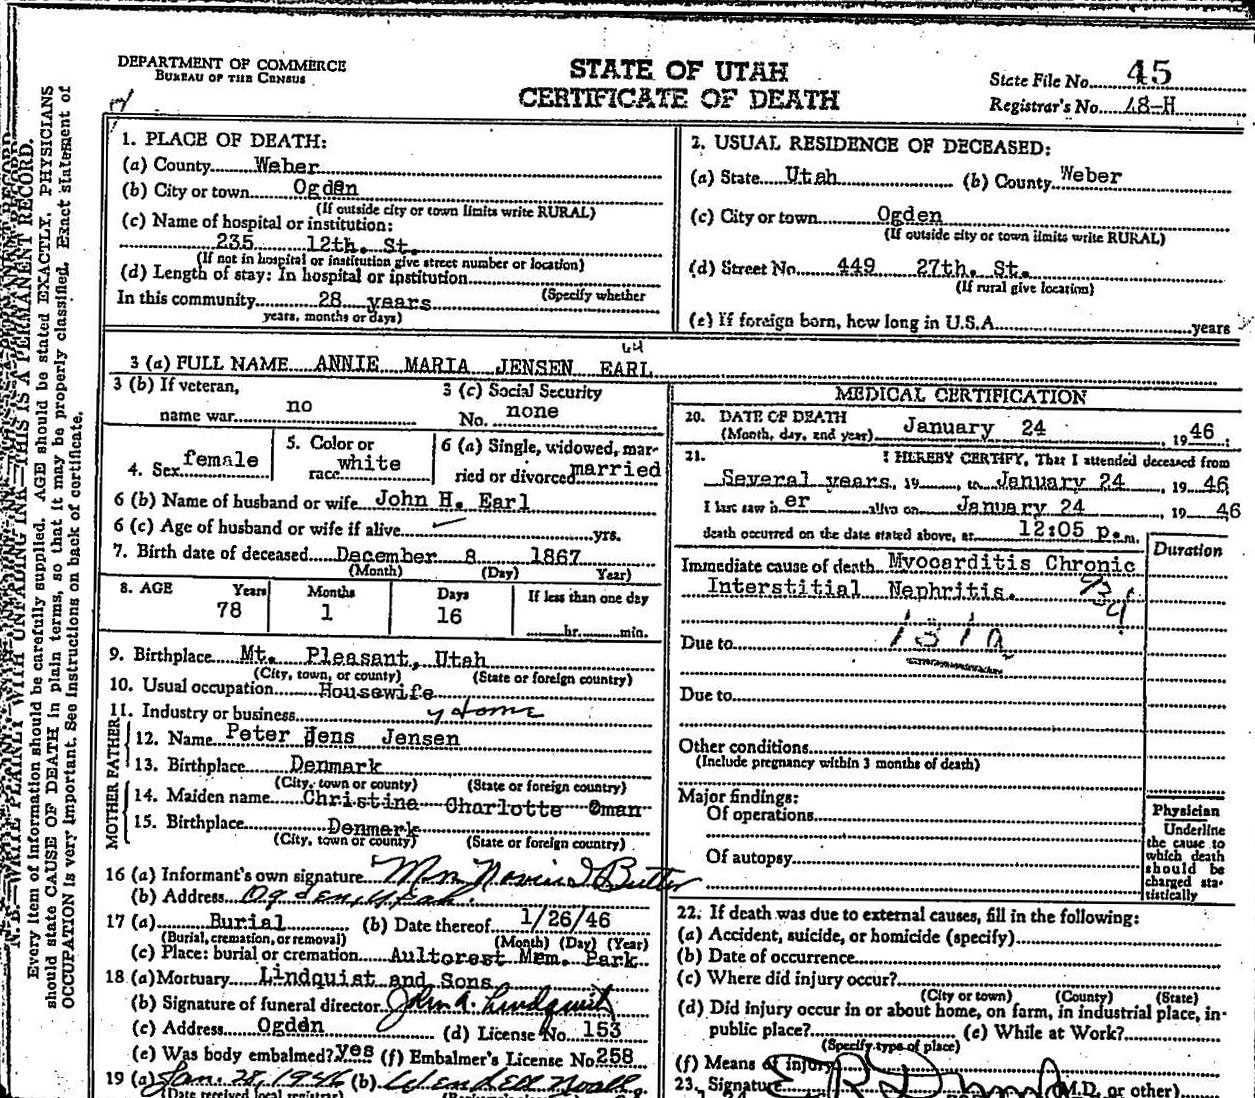 DEPARTMENT OF COMMERCE
BUREAU OF THE CENSUS
STATE OF UTAH
CERTIFICATE OF DEATH
State File No. 45
Registrar's No. 48-H
N. B.—WRITE PLAINLY WITH UNFADING INK—THIS IS A PERMANENT RECORD.
Every item of information should be carefully supplied. AGE should be stated EXACTLY. PHYSICIANS
should state CAUSE OF DEATH in plain terms, so that it may be properly classified. Exact statement of
OCCUPATION is very important. See instructions on back of certificate.
1. PLACE OF DEATH:
(a) County Weber
(b) City or town Ogden
(If outside city or town limits write RURAL)
(c) Name of hospital or institution:
235 12th. St.
(If not in hospital or institution give street number or location)
(d) Length of stay: In hospital or institution
(Specify whether
In this community 28 years
years, months or days)
2. USUAL RESIDENCE OF DECEASED:
(a) State Utah (b) County Weber
(c) City or town Ogden
(If outside city or town limits write RURAL)
(d) Street No. 449 27th. St.
(If rural give location)
(e) If foreign born, how long in U.S.A. years
64
3 (a) FULL NAME ANNIE MARIA JENSEN EARL
3 (b) If veteran, name war no
3 (c) Social Security No. none
4. Sex female
5. Color or race white
6 (a) Single, widowed, married or divorced married
6 (b) Name of husband or wife John H. Earl
6 (c) Age of husband or wife if alive yrs.
7. Birth date of deceased December 8 1867
(Month) (Day) Year)
8. AGE Years Months Days If less than one day
78 1 16 hr. min.
9. Birthplace Mt. Pleasant, Utah
(City, town, or county) (State or foreign country)
10. Usual occupation Housewife
11. Industry or business Home
FATHER
12. Name Peter Jens Jensen
13. Birthplace Denmark
(City, town or county) (State or foreign country)
MOTHER
14. Maiden name Christine Charlotte Oman
15. Birthplace Denmark
(City, town or county) (State or foreign country)
16 (a) Informant's own signature Butter
(b) Address Ogden, Utah.
17 (a) Burial (b) Date thereof 1/26/46
(Burial, cremation, or removal) (Month) (Day) (Year)
(c) Place: burial or cremation Aultorest Mem. Park
18 (a) Mortuary Lindquist and Sons
(b) Signature of funeral director John A. Lindquist
(c) Address Ogden (d) License No. 153
(e) Was body embalmed? yes (f) Embalmer's License No. 258
19 (a) Jan. 28, 1946 (b) Wendell Noall
(Date received local registrar)
MEDICAL CERTIFICATION
20. DATE OF DEATH
(Month, day, and year) January 24, 1946
21. I HEREBY CERTIFY, That I attended deceased from
Several years, 19 , to January 24, 1946
I last saw h er alive on January 24, 1946
death occurred on the date stated above, at 12:05 p.m.
Duration
Immediate cause of death Myocarditis Chronic
Interstitial Nephritis.
131a
Due to
Due to
Other conditions
(Include pregnancy within 3 months of death)
Major findings:
Of operations
Of autopsy
Physician
Underline
the cause to
which death
should be
charged sta-
tistically
22. If death was due to external causes, fill in the following:
(a) Accident, suicide, or homicide (specify)
(b) Date of occurrence
(c) Where did injury occur?
(City or town) (County) (State)
(d) Did injury occur in or about home, on farm, in industrial place, in
public place? (e) While at Work?
(Specify type of place)
(f) Means of injury
23. Signature (M.D. or other)